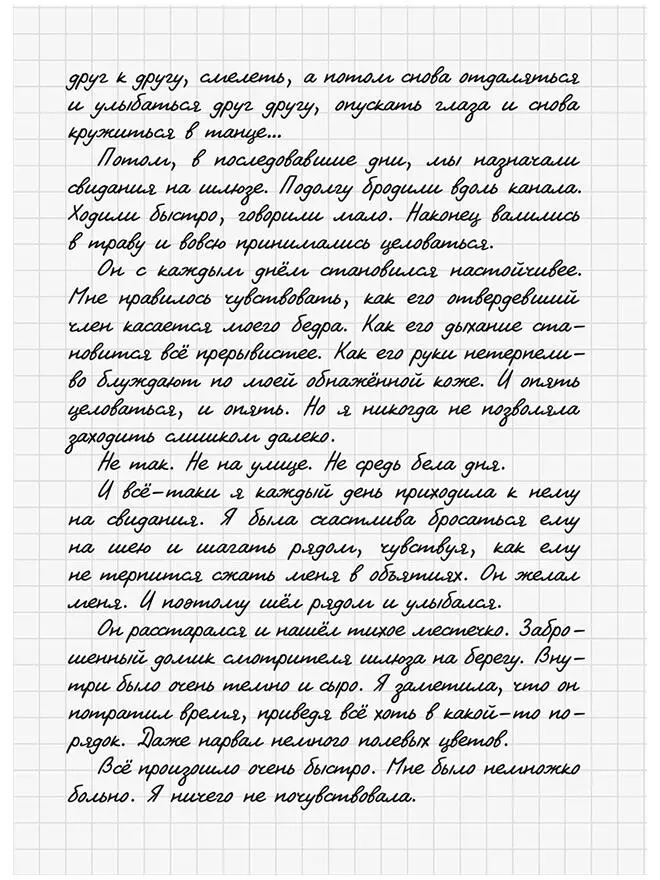 друг к другу, смелеть, а потом снова отдаляться
и улыбаться друг другу, опускать глаза и снова
кружиться в танце...
Потом, в последовавшие дни, мы назначали
свидания на шлюзе. Подолгу бродили вдоль канала.
Ходили быстро, говорили мало. Наконец валились
в траву и вовсю принимались целоваться.
Он с каждым днём становился настойчивее.
Мне нравилось чувствовать, как его отвердевший
член касается моего бедра. Как его дыхание ста-
новится всё прерывистее. Как его руки нетерпели-
во блуждают по моей обнажённой коже. И опять
целоваться, и опять. Но я никогда не позволяла
заходить слишком далеко.
Не так. Не на улице. Не средь бела дня.
И всё-таки я каждый день приходила к нему
на свидания. Я была счастлива бросаться ему
на шею и шагать рядом, чувствуя, как ему
не терпится сжать меня в объятиях. Он желал
меня. И поэтому шёл рядом и улыбался.
Он расстарался и нашёл тихое местечко. Забро-
шенный домик смотрителя шлюза на берегу. Вну-
три было очень темно и сыро. Я заметила, что он
потратил время, приведя всё хоть в какой-то по-
рядок. Даже нарвал немного полевых цветов.
Всё произошло очень быстро. Мне было немножко
больно. Я ничего не почувствовала.